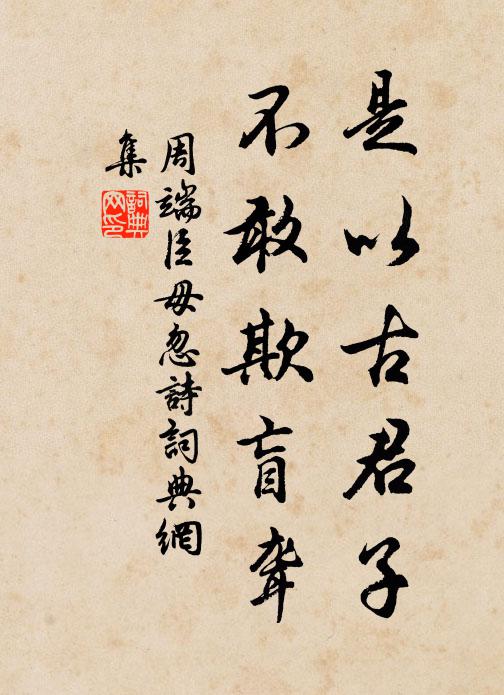 是以古君子
不敢欺盲聋
周端臣毋忽詩詞典網
集
詞典網印